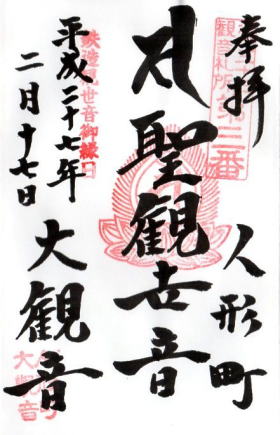 奉拝
観音札所
第三番
人形町
聖観世音
大観音
平成二十七年
二月十七日
世音御縁日
大観音